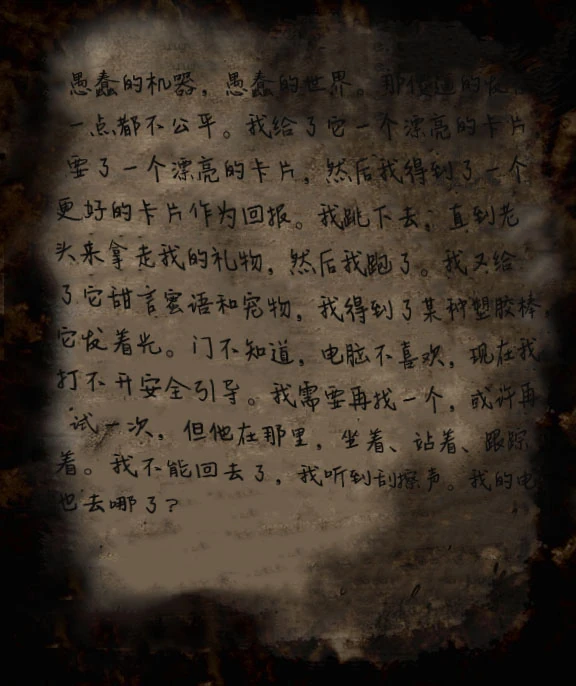 愚蠢的机器，愚蠢的世界。那
一点都不公平。我给了它一个漂亮的卡片
要了一个漂亮的卡片，然后我得到了一个
更好的卡片作为回报。我跳下去，直到老
头来拿走我的礼物，然后我跑了。我又给
了它甜言蜜语和宠物，我得到了某种塑胶棒，
它发着光。门不知道，电脑不喜欢，现在我
打不开安全引导。我需要再找一个，或许再
试一次，但他在那里，坐着、站着、跟踪
着。我不能回去了，我听到刮擦声。我的电
也去哪了？